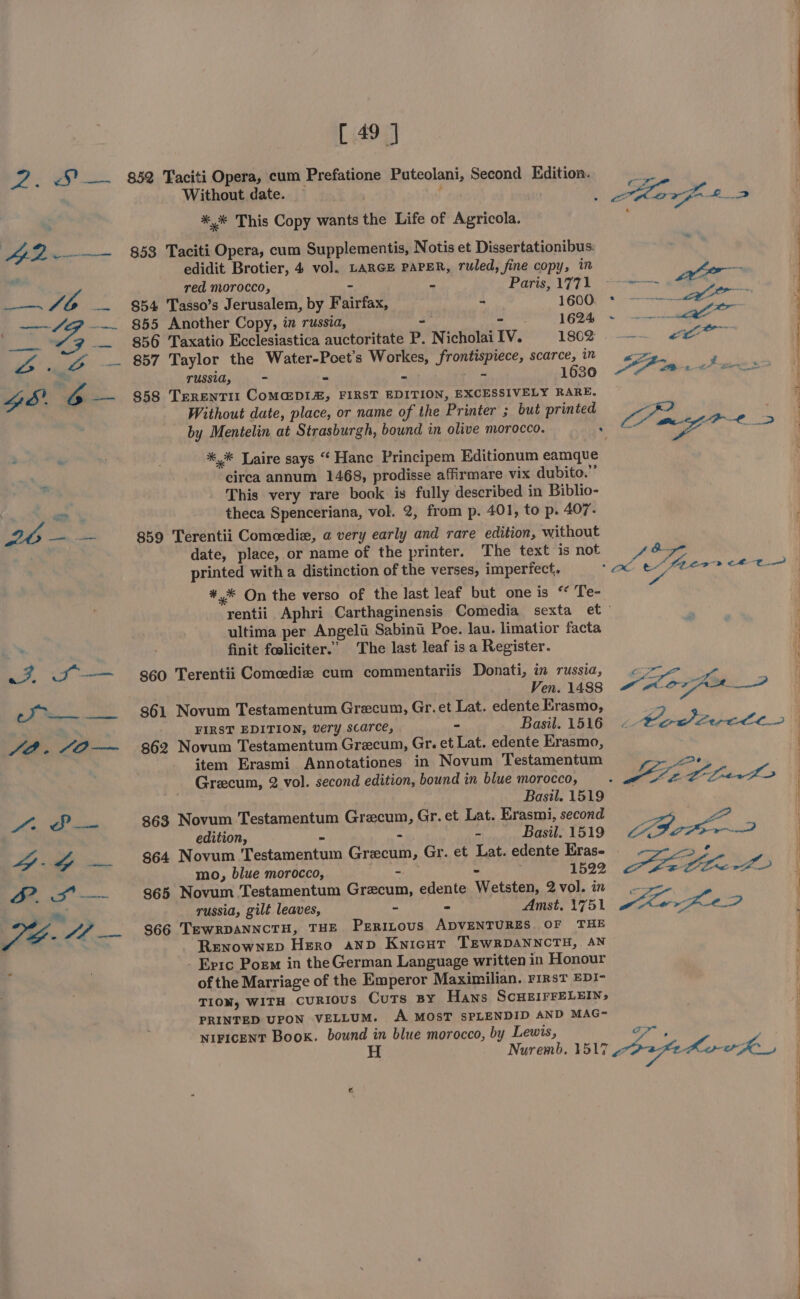 [ 49 ]
2. 8 — 852 Taciti Opera, cum Prefatione Puteolani, Second Edition.
Without date.
*⁎* This Copy wants the Life of Agricola.
42 — 853 Taciti Opera, cum Supplementis, Notis et Dissertationibus
edidit Brotier, 4 vol. LARGE PAPER, ruled, fine copy, in
red morocco, - - Paris, 1771
— 16 — 854 Tasso's Jerusalem, by Fairfax, - 1600
— 855 Another Copy, in russia, - - 1624
— 856 Taxatio Ecclesiastica auctoritate P. Nicholai IV. 1802
6 . 6 — 857 Taylor the Water-Poet's Workes, frontispiece, scarce, in
russia, - - - - 1630
48. 6 — 858 TERENTII COMŒDIÆ, FIRST EDITION, EXCESSIVELY RARE.
Without date, place, or name of the Printer ; but printed
by Mentelin at Strasburgh, bound in olive morocco.
*⁎* Laire says “ Hanc Principem Editionum eamque
circa annum 1468, prodisse affirmare vix dubito.”
This very rare book is fully described in Biblio-
theca Spenceriana, vol. 2, from p. 401, to p. 407.
26 — — 859 Terentii Comœdiæ, a very early and rare edition, without
date, place, or name of the printer. The text is not
printed with a distinction of the verses, imperfect.
*⁎* On the verso of the last leaf but one is “ Te-
rentii Aphri Carthaginensis Comedia sexta et
ultima per Angelū Sabinū Poe. lau. limatior facta
finit fœliciter.” The last leaf is a Register.
3. 5 — 860 Terentii Comœdiæ cum commentariis Donati, in russia,
Ven. 1488
5 — — 861 Novum Testamentum Græcum, Gr. et Lat. edente Erasmo,
FIRST EDITION, very scarce, - Basil. 1516
10. 10 — 862 Novum Testamentum Græcum, Gr. et Lat. edente Erasmo,
item Erasmi Annotationes in Novum Testamentum
Græcum, 2 vol. second edition, bound in blue morocco,
Basil. 1519
1. 8 — 863 Novum Testamentum Græcum, Gr. et Lat. Erasmi, second
edition, - - - Basil. 1519
4. 4 — 864 Novum Testamentum Græcum, Gr. et Lat. edente Eras-
mo, blue morocco, - - 1522
8. 5 — 865 Novum Testamentum Græcum, edente Wetsten, 2 vol. in
russia, gilt leaves, - - Amst. 1751
— 866 TEWRDANNCTH, THE PERILOUS ADVENTURES OF THE
RENOWNED HERO AND KNIGHT TEWRDANNCTH, AN
EPIC POEM in the German Language written in Honour
of the Marriage of the Emperor Maximilian. FIRST EDI-
TION, WITH CURIOUS CUTS BY HANS SCHEIFFELEIN,
PRINTED UPON VELLUM. A MOST SPLENDID AND MAG-
NIFICENT BOOK. bound in blue morocco, by Lewis,
H Nuremb. 1517